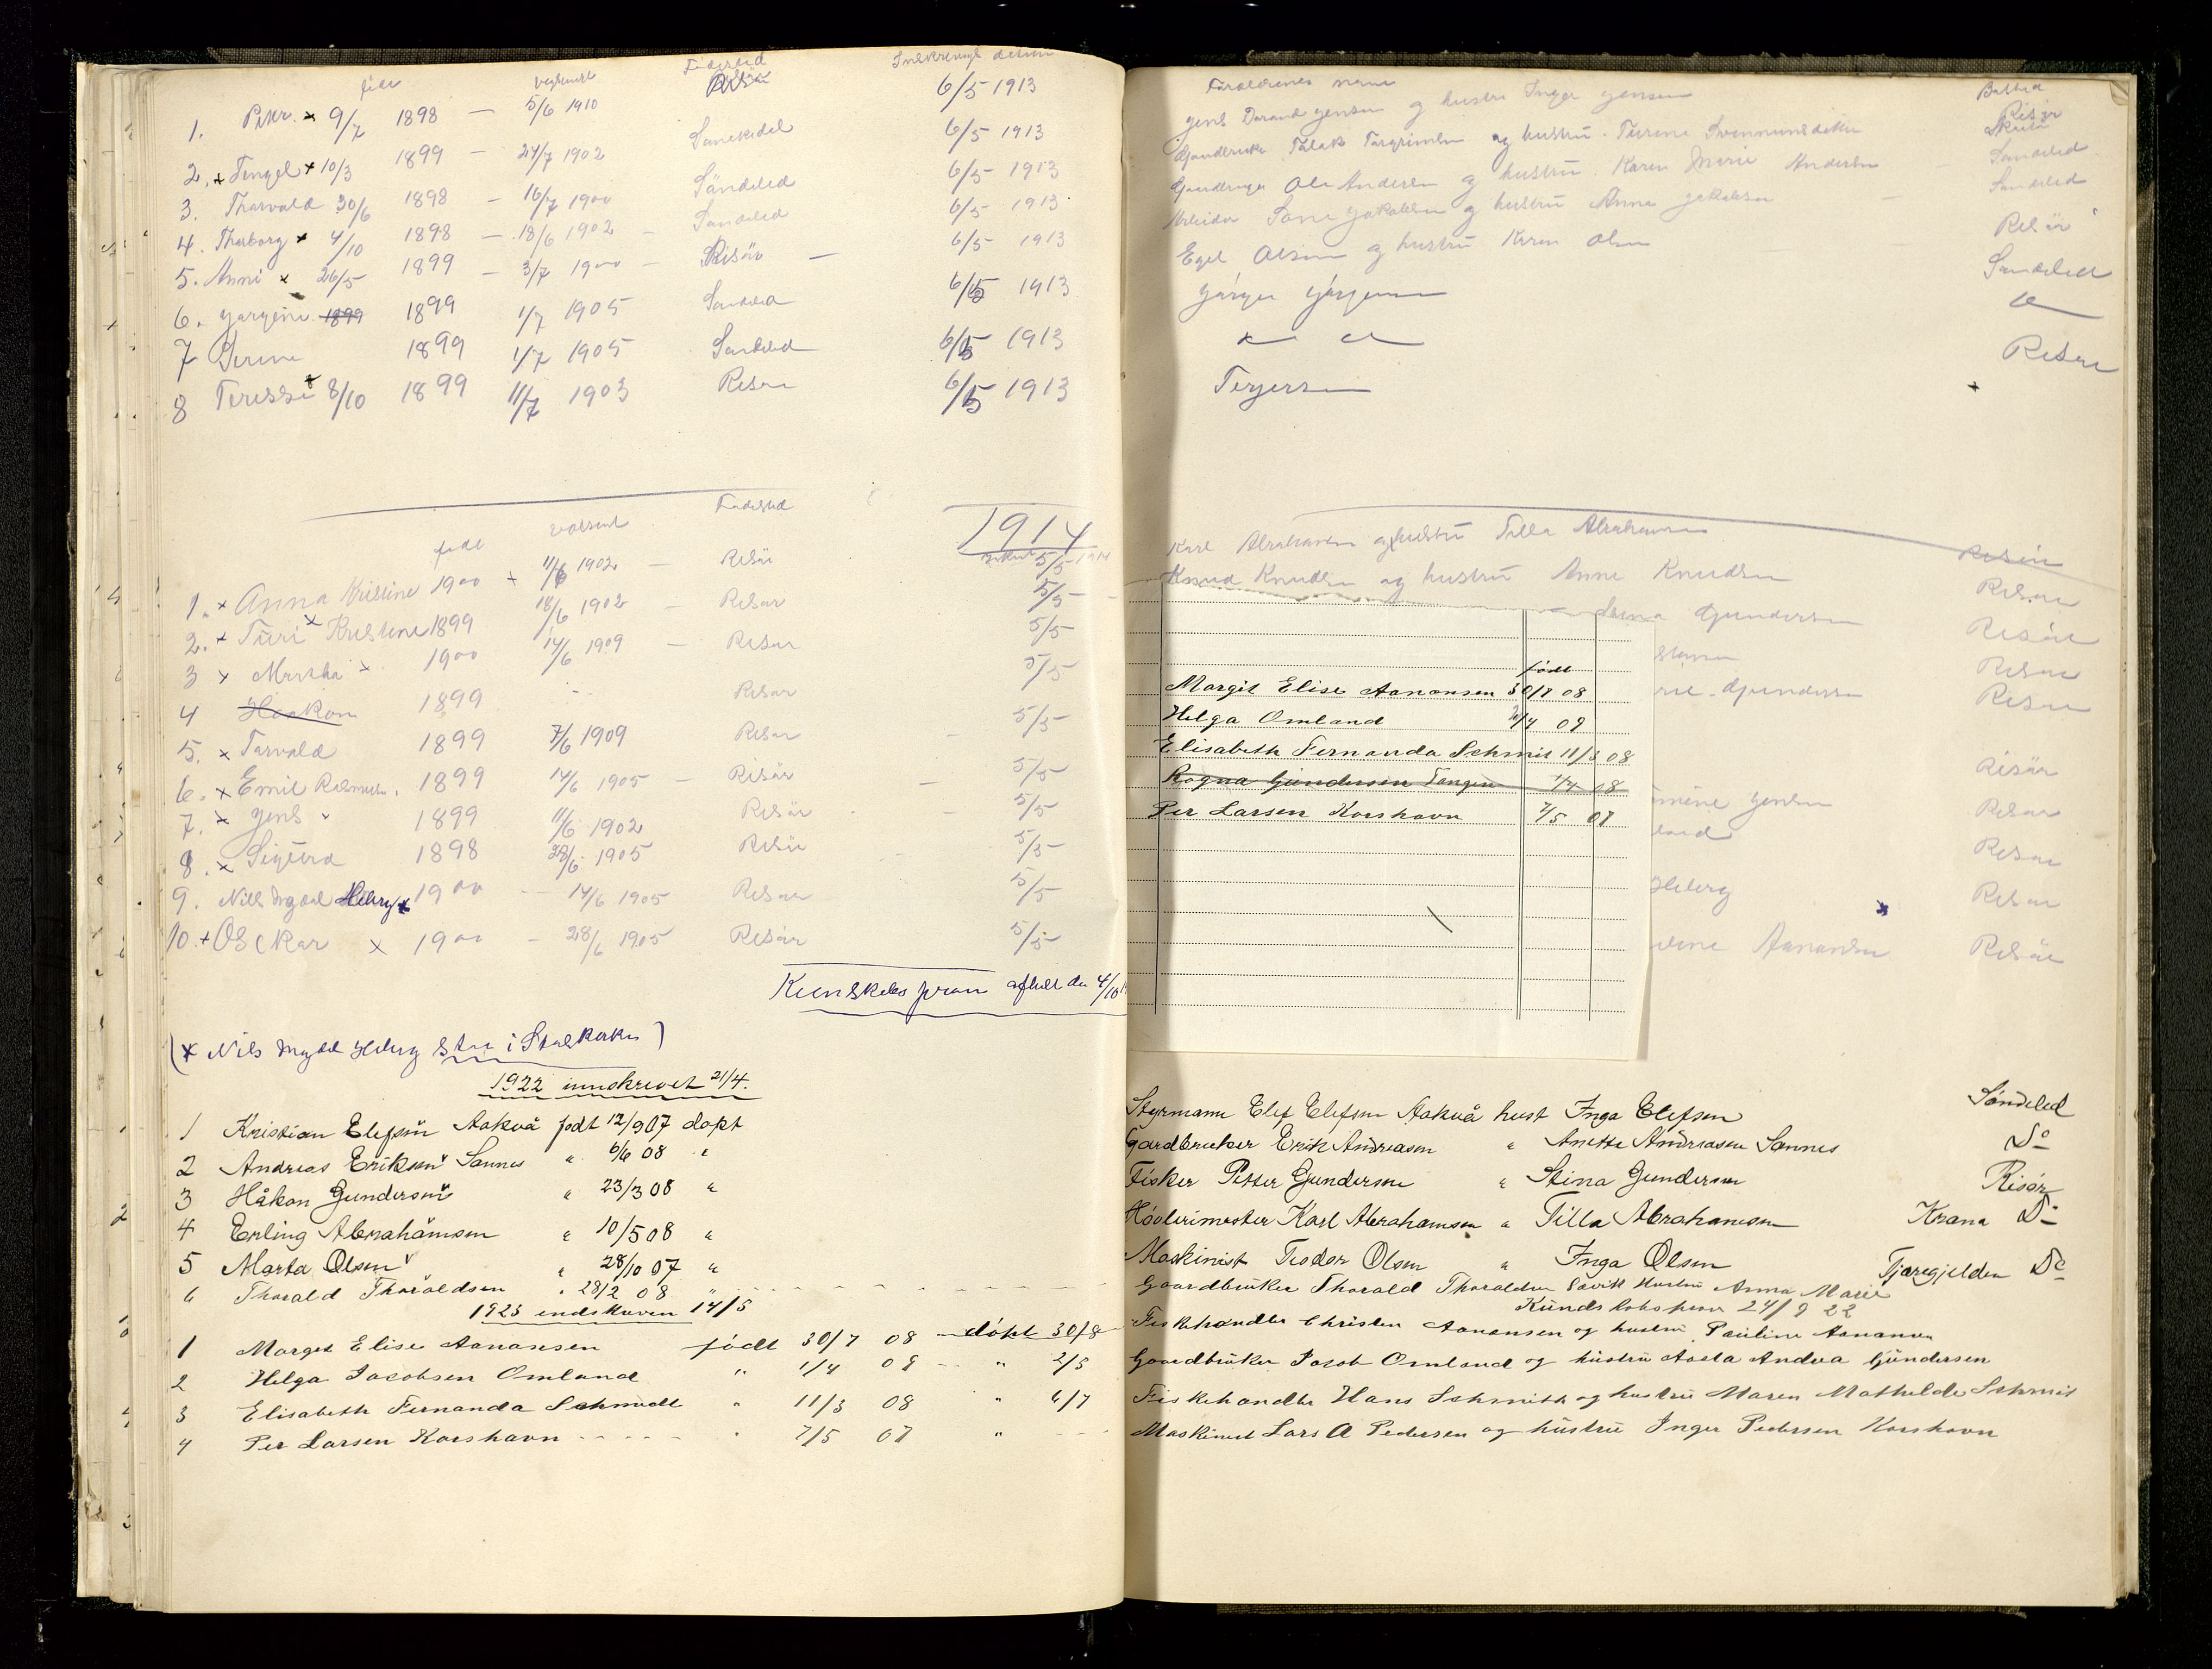 föde Födested
1. Peter x 9/7 1898 — 5/6 1910 Risör 6/5 1913
2. x Tengel x 10/3 1899 — 27/7 1902 6/5 1913
3. Tharvald 30/6 1898 — 16/7 1900 Söndeled 6/5 1913
4. Tharborg x 4/10 1898 — 18/6 1902 — Söndeled 6/5 1913
5. Anni x 26/5 1899 — 3/7 1900 — Risör — 6/5 1913
6. 1899 1899 1/7 1905 Söndeled 6/5 1913
7 1899 1/7 1905 Söndeled 6/5 1913
8 8/10 1899 11/7 1903 Risør 6/5 1913
föde Födested 1914
1. x Anna Kristine 1900 x 11/6 1902 — Risör 5/5 1914
2. x Turi x Kristine 1899 18/6 1902 — Risør 5/5
3 x Martha x 1900 14/6 1909 — Risør 5/5
4 Haakon 1899 Risør 5/5
5. x Tarvald 1899 7/6 1909 Risør 5/5
6. x Emil Rasmus 1899 14/6 1905 — Risör 5/5
7. x Jens 1899 11/6 1902 Risör 5/5
8. x Sigurd 1898 28/6 1905 Risör 5/5
9. Nils Heberg x 1900 — 14/6 1905 Risør 5/5
10. + Osckar x 1900 — 28/6 1905 Risör 5/5
afhelt den 4/10
(x Nils Heberg i )
1922 innskrevet 21/4.
1 Kristian Elefsen Aakvå født 12/9 07 døpt
2 Andreas Eriksen Sannes " 6/6 08 "
3 Håkon Gundersen " 23/3 08 "
4 Erling Abrahamsen " 10/5 08 "
5 Marta Olsen " 28/10 07 "
6 Thorald Thoraldsen " 28/2 08 "
1923 indskreven 14/5
1 Marget Elise Aanonsen født 30/7 08 — døpt 30/8
2 Helga Jacobsen Omland " 1/4 09 — " 2/5
3 Elisabeth Fernanda Schmidt " 11/3 08 " 6/7
4 Per Larsen Korshavn " 7/5 07 "
Foraldrenes navn
Jens Jensen og hustru Inger Jensen Risør
Gaardbruker Torgrimsen og hustru Söndeled
Gaardbruger Ole Andersen og hustru Karen Marie Andersen Söndeled
Arbeider Jakobsen og hustru Anna Jakobsen
Egel Olsen og hustru Karen Olsen Risör
Jörgen Jörgensen Söndeled
Terjersen Risør
Karl Abrahamsen og hustru Tilla Abrahamsen Risör
Knud Knudsen og hustru Anne Knudsen Risør
Gundersen Risör
Risør
Gundersen Risør
født
Margit Elise Aanonsen 30/7 08
Helga Omland 1/4 09
Elisabeth Fernanda Schmit 11/3 08
Ragna Gundersen Tangen 1/4 08
Per Larsen Korshavn 7/5 07
Risör
Jensen Risør
Risør
Heberg Risør
Aanonsen Risör
Styrmann Elef Elefsen Aakvå hust Inga Elefsen Søndeled
Gardbruker Erik Andreasen " Anette Andreasen Sannes Do
Fisker Petter Gundersen " Stina Gundersen Risør
Høvlerimester Karl Abrahamsen " Tilla Abrahamsen Krana Do
Maskinist Teodor Olsen " Inga Olsen Tjæregjelden Do
Gaardbruker Thorald Thoraldsen Hustru Anna Marie
Kundskabsprøve 24/9 22
Fiskehandler Christen Aanonsen og hustru Pauline Aanonsen
Gaardbruker Jacob Omland og hustru Aasta Andrea Gundersen
Fiskehandler Hans Schmith og hustru Maren Mathilde Schmit
Maskinist Lars A Pedersen og hustru Inger Pedersen Korshavn